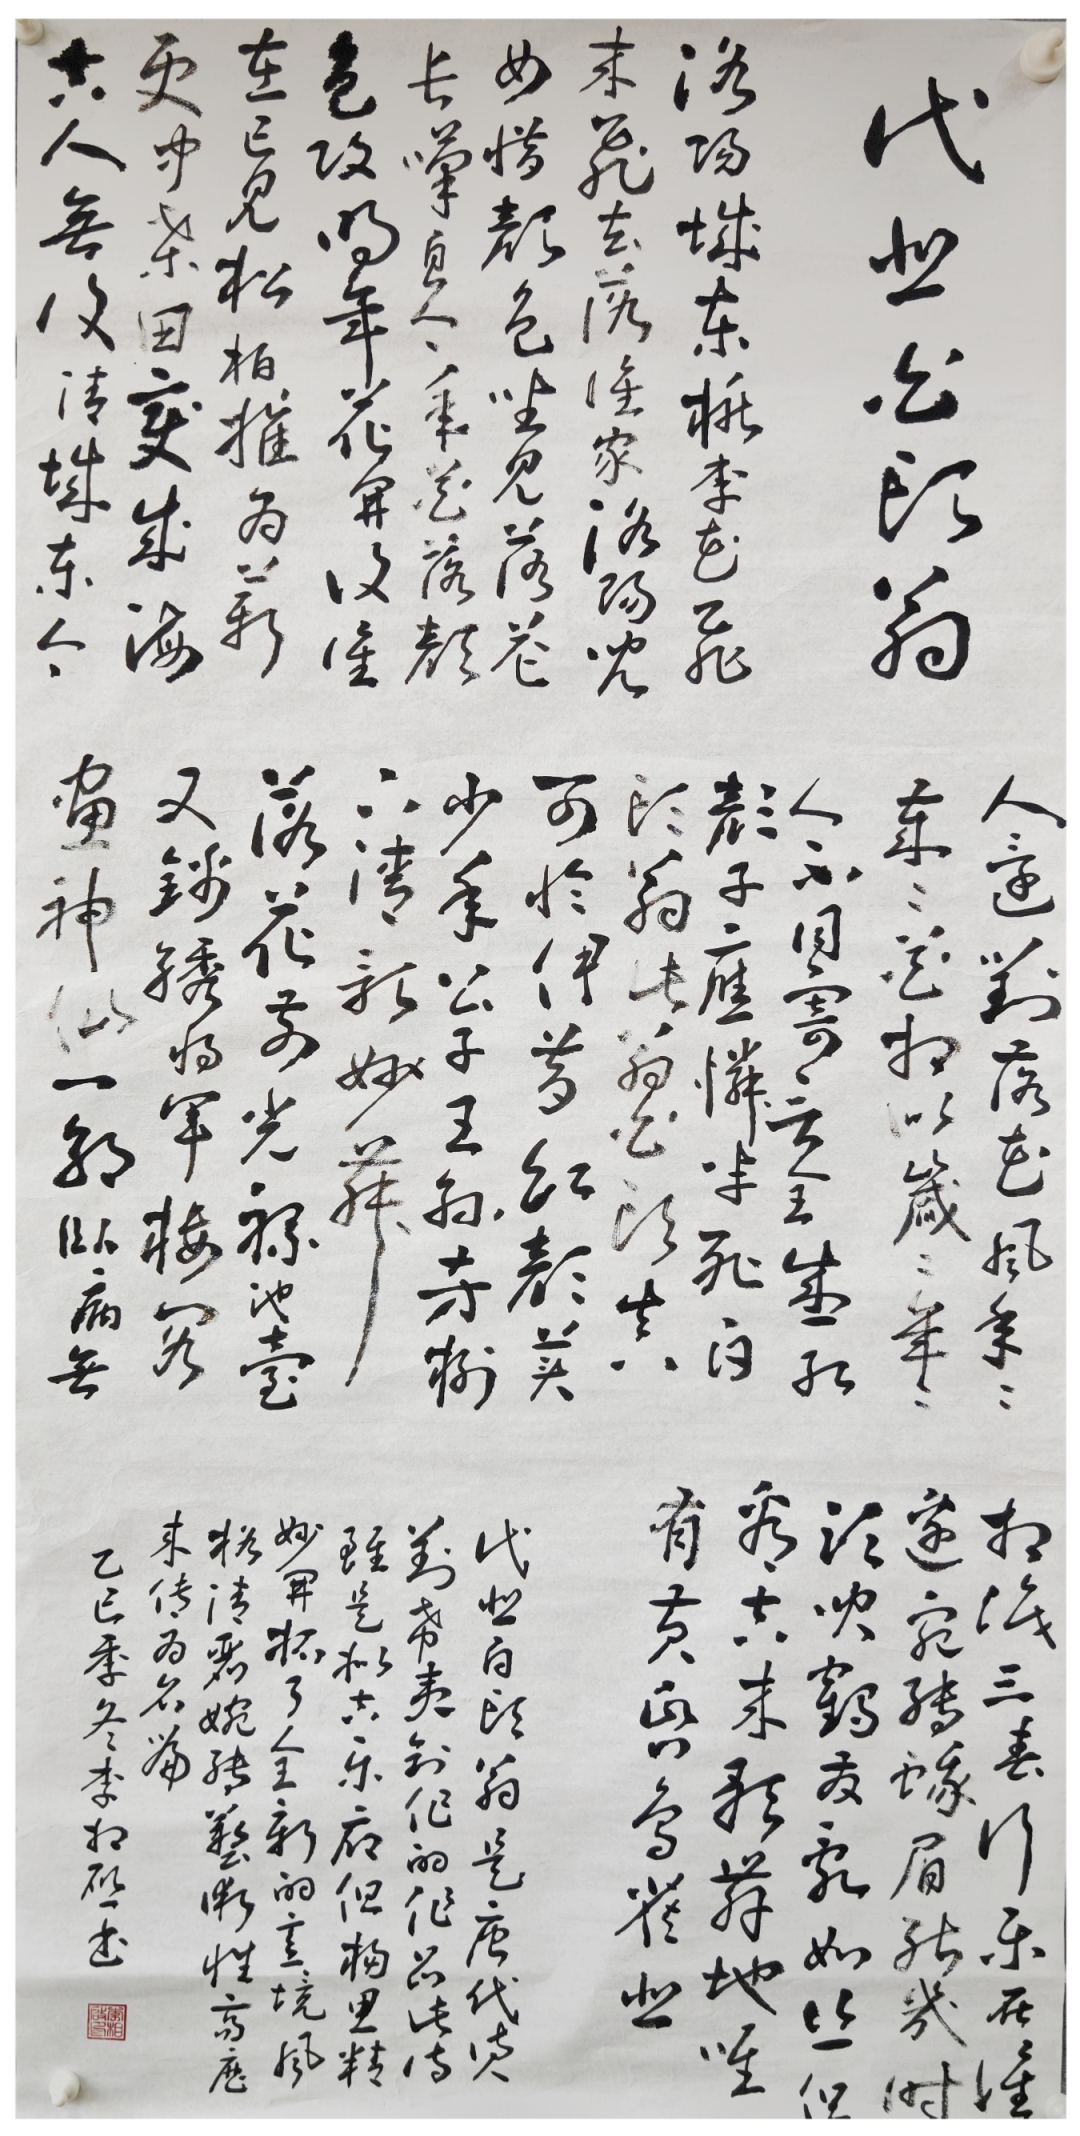 代悲白頭翁
洛陽城東桃李花飛
來飛去落誰家洛陽兒
女惜顏色坐見落花
長嘆息今年花落顏
色改明年花開復誰
在已見松柏摧為薪
更聞桑田變成海
古人無復清城東今
人還對落花風年々
歲々花相似歲々年々
人不同寄言全盛紅
顏子應憐半死白
頭翁此翁白頭真
可憐伊昔紅顏美
少年公子王孫芳樹
下清歌妙舞
落花前光祿池臺
文錦繡將軍樓閣
畫神仙一朝臥病無
相識三春行樂在誰
邊宛轉蛾眉能幾時
須臾鶴髮亂如絲但
看古來歌舞地唯
有黃昏鳥雀悲
代悲白頭翁是唐代詩
劉希夷創作的作品此詩
雖是擬古樂府但構思精
妙開拓了全新的意境風
格清麗婉轉藝術性高歷
來傳為名篇
乙巳季冬李相啟書